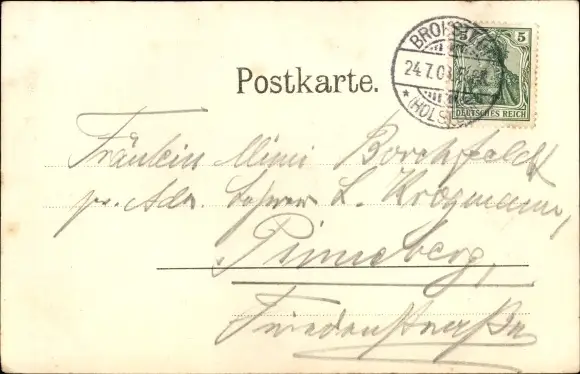 5
BROKST
24.7.0
(HOLST
DEUTSCHES REICH
Postkarte.
Fräulein Mimi Borchfeldt
pr. Adr. L. Krogmann,
Pinneberg,
Friedenstraße